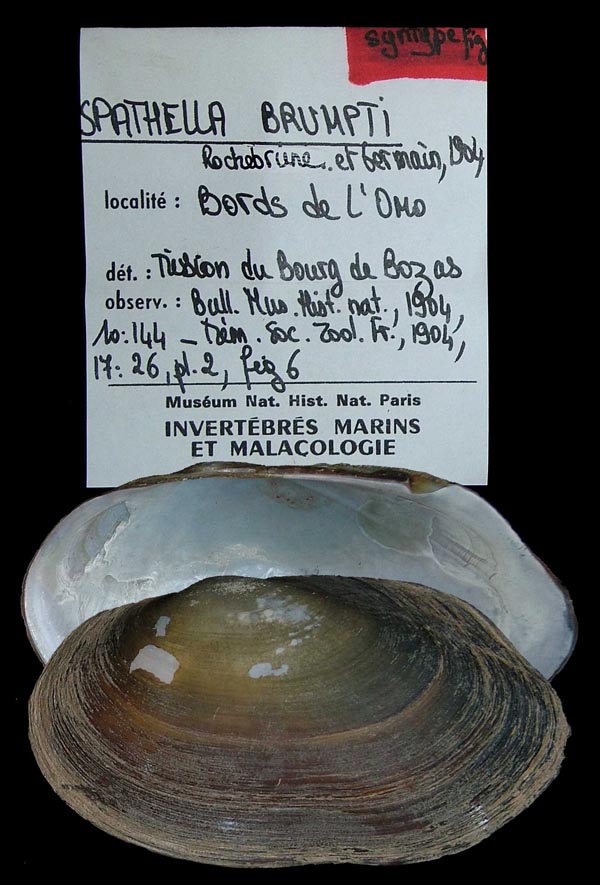 syntype fig
SPATHELLA BRUMPTI
Rochebrune et Germain, 1904
localité : Bords de L'Omo
dét. : Mission du Bourg de Bozas
observ. : Bull. Mus. Hist. nat., 1904,
10: 144 - Mém. Soc. Zool. Fr., 1904,
17: 26, pl. 2, fig 6
Muséum Nat. Hist. Nat. Paris
INVERTÉBRÉS MARINS
ET MALACOLOGIE